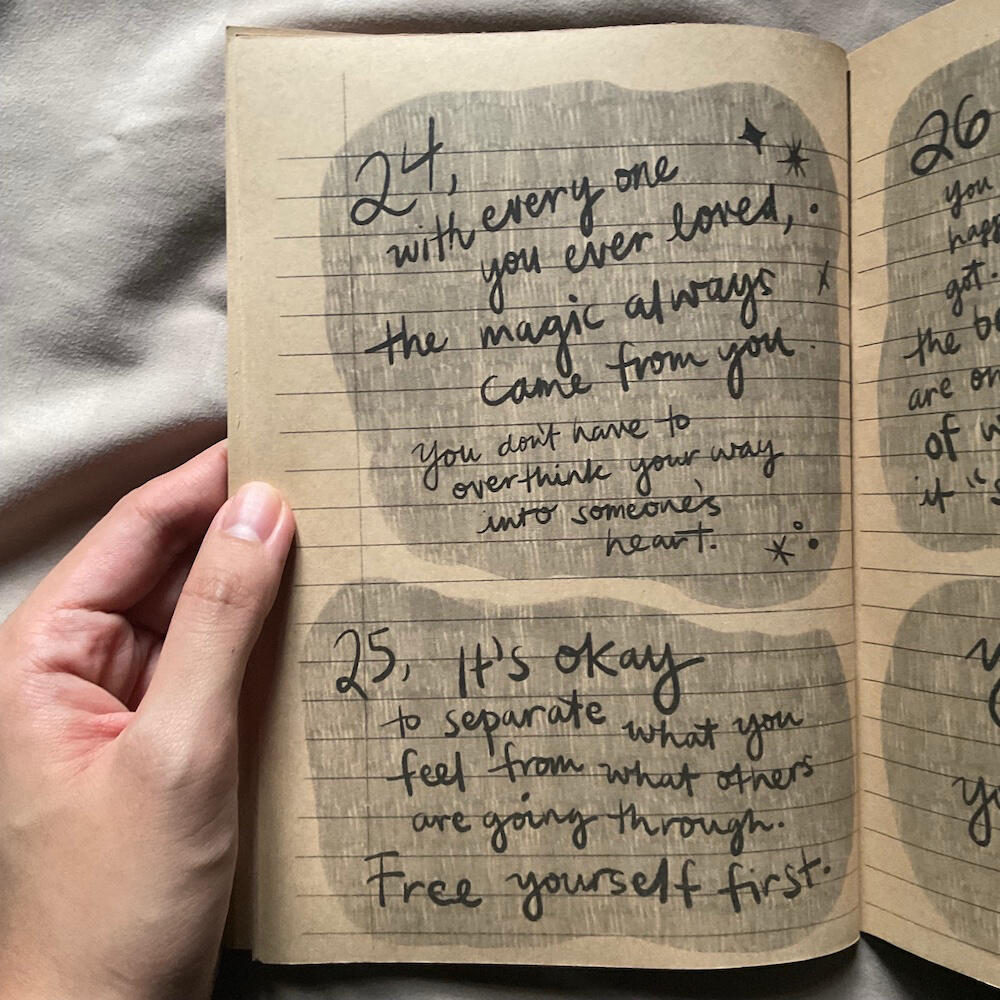 24,
with every one
you ever loved,
the magic always
came from you.
you don't have to
overthink your way
into someone's
heart.
25, It's okay
to separate what you
feel from what others
are going through.
Free yourself first.
26
you
got.
the
are
of
it